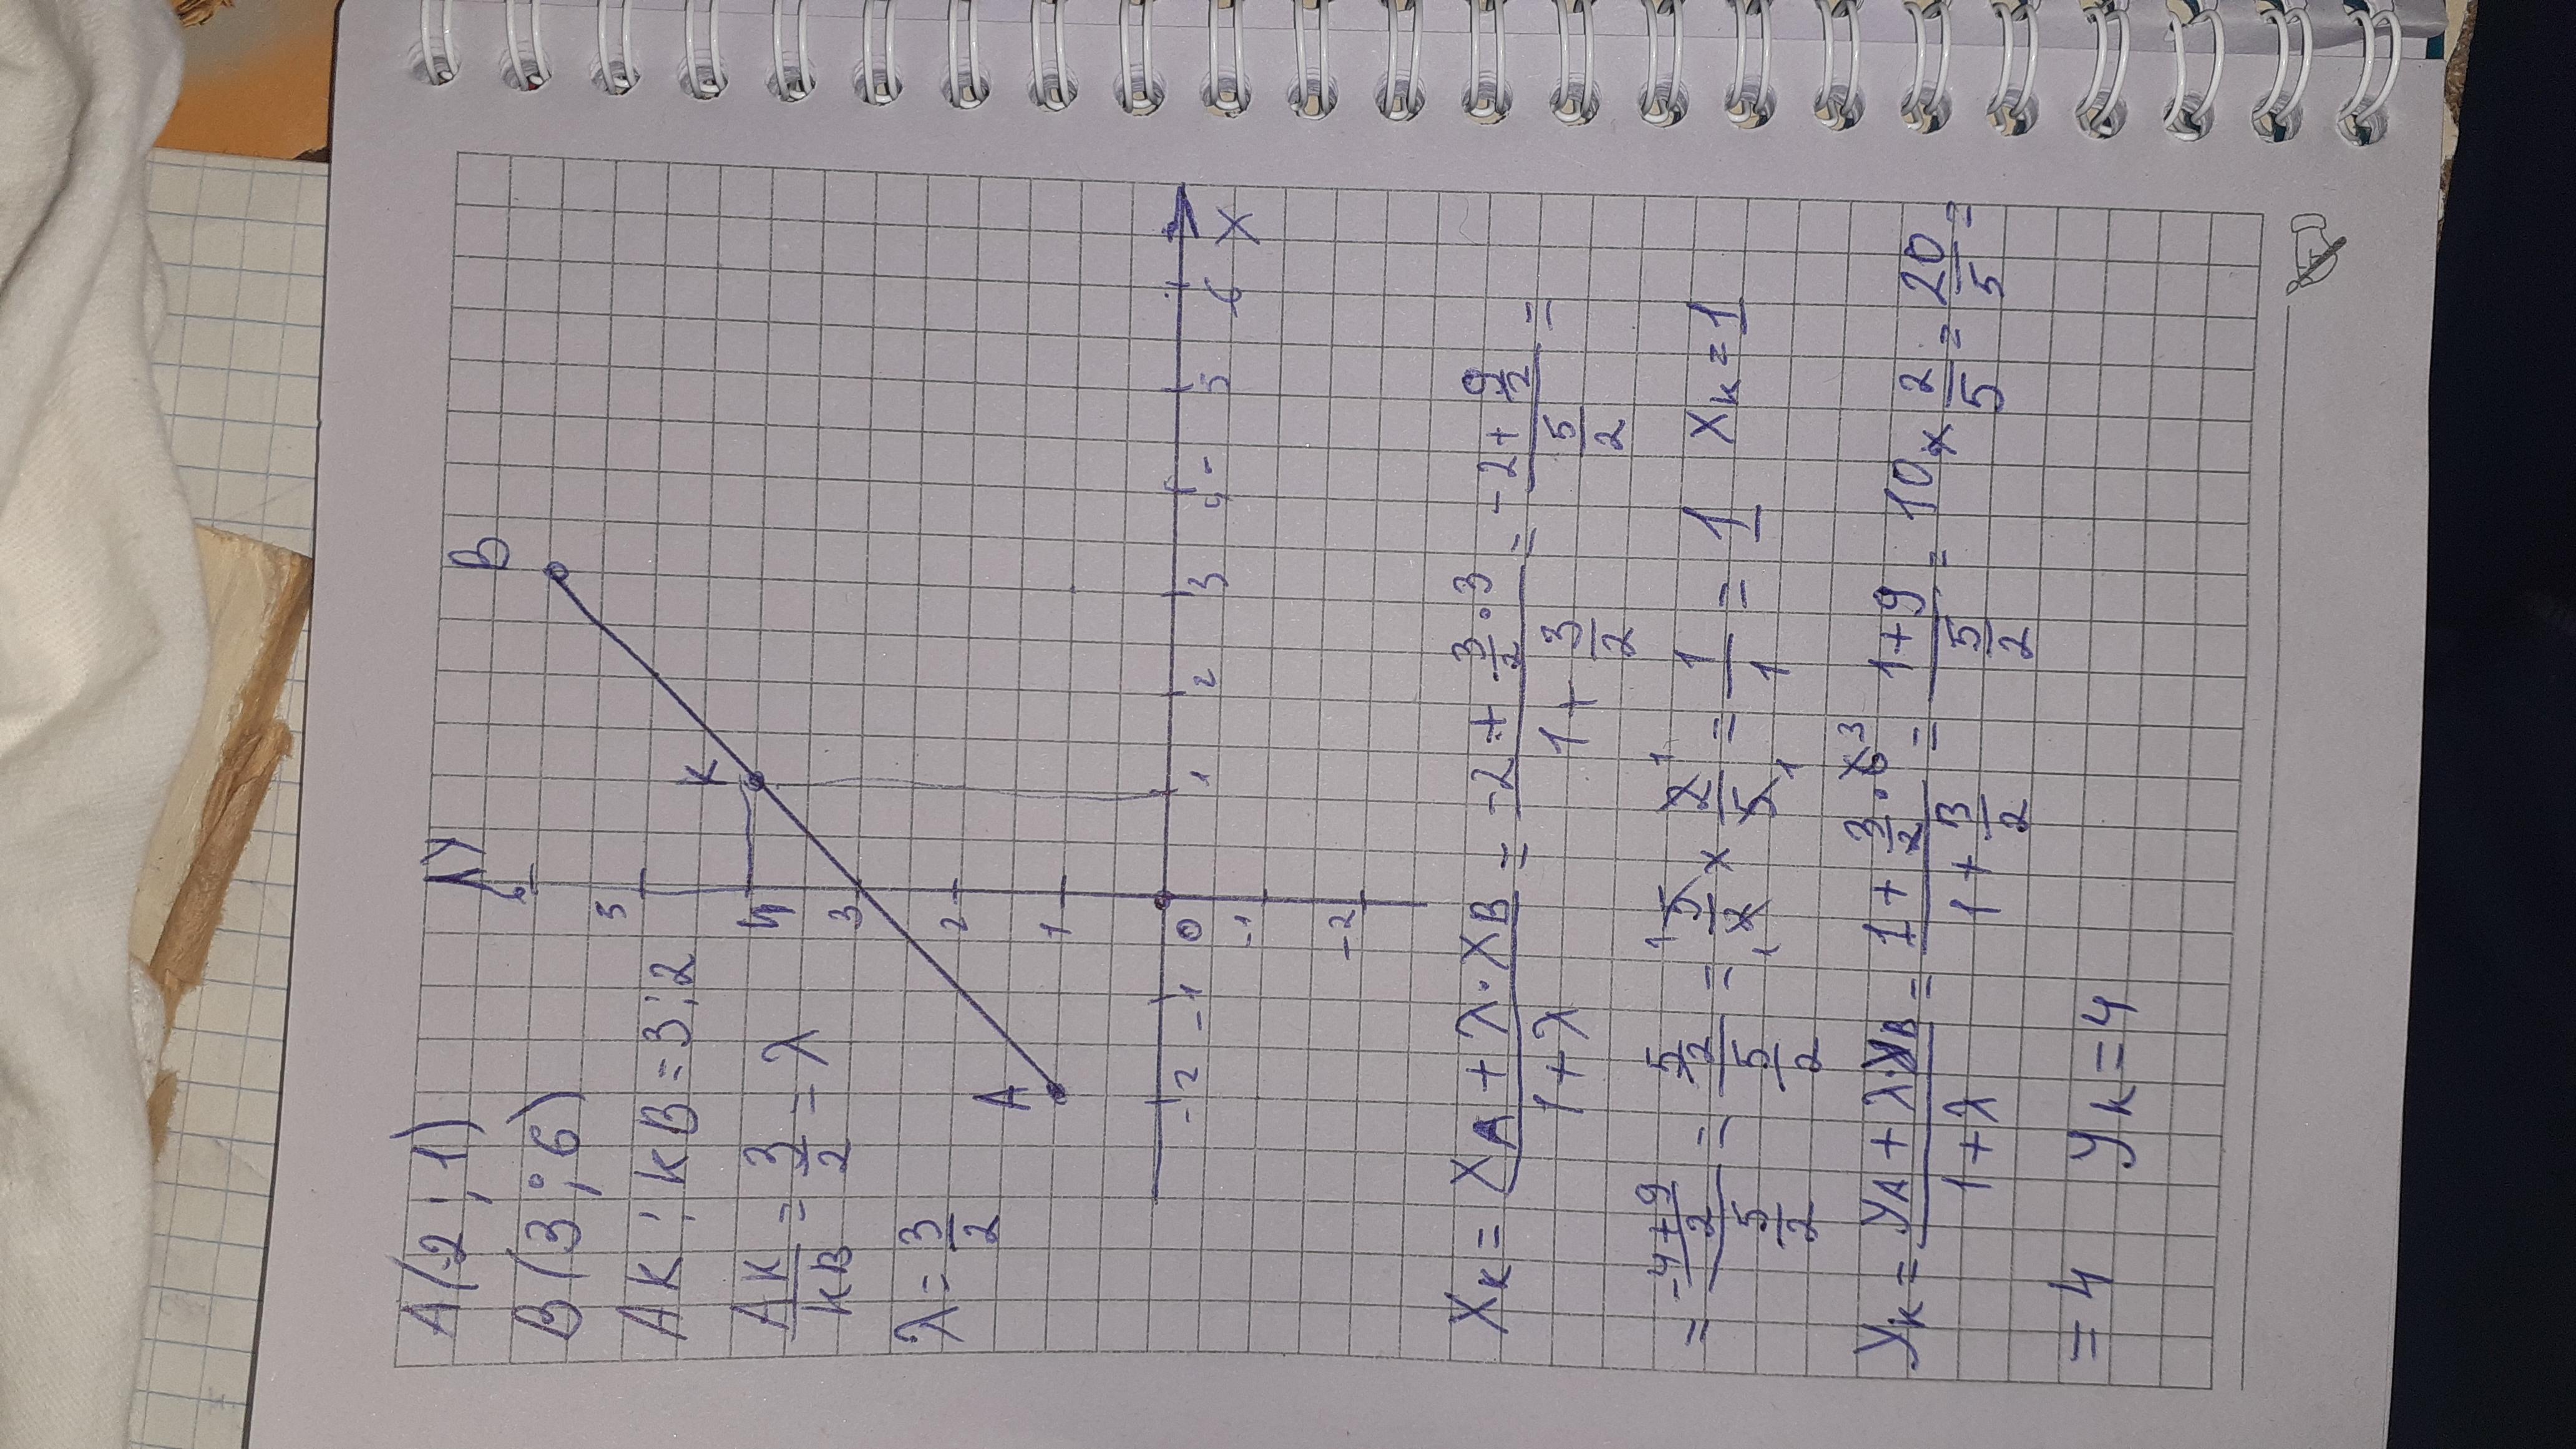 A(2;1)
B(3;6)
AK:KB=3:2
AK/KB = 3/2 = λ
λ = 3/2
y
6
5
4
3
2
1
0
-1
-2
-2 -1 1 2 3 4 5 6 X
A
K
B
Xк = (XA + λ·XB)/(1+λ) = (-2 + 3/2 · 3)/(1 + 3/2) = (-2 + 9/2)/(5/2) =
= ((-4+9)/2)/(5/2) = (5/2)/(5/2) = 5/2 × 2/5 = 1/1 = 1 Xк = 1
Yк = (YA + λ·YB)/(1+λ) = (1 + 3/2 · 6 3)/(1 + 3/2) = (1+9)/(5/2) = 10 × 2/5 = 20/5 =
= 4 Yк = 4